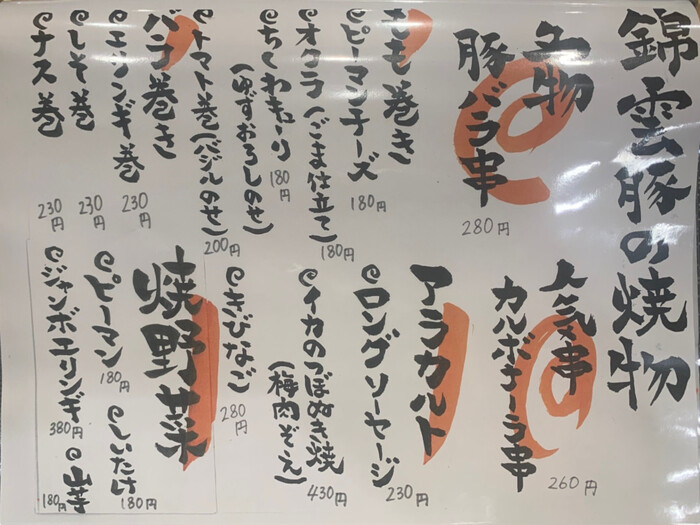 錦雲豚の焼物
名物
豚バラ串
280円
人気串
カルボナーラ串
260円
もも巻き
ピーマンチーズ
180円
オクラ(ごま仕立て)
180円
ちくわきゅーり
(ゆずおろしのせ)
180円
トマト巻(バジルのせ)
200円
バラ巻き
エリンギ巻
230円
しそ巻
230円
ナス巻
230円
アラカルト
ロングソーセージ
230円
イカのつぼぬき焼
(梅肉ぞえ)
430円
きびなご
280円
焼野菜
ピーマン
180円
しいたけ
180円
ジャンボエリンギ
380円
山芋
180円